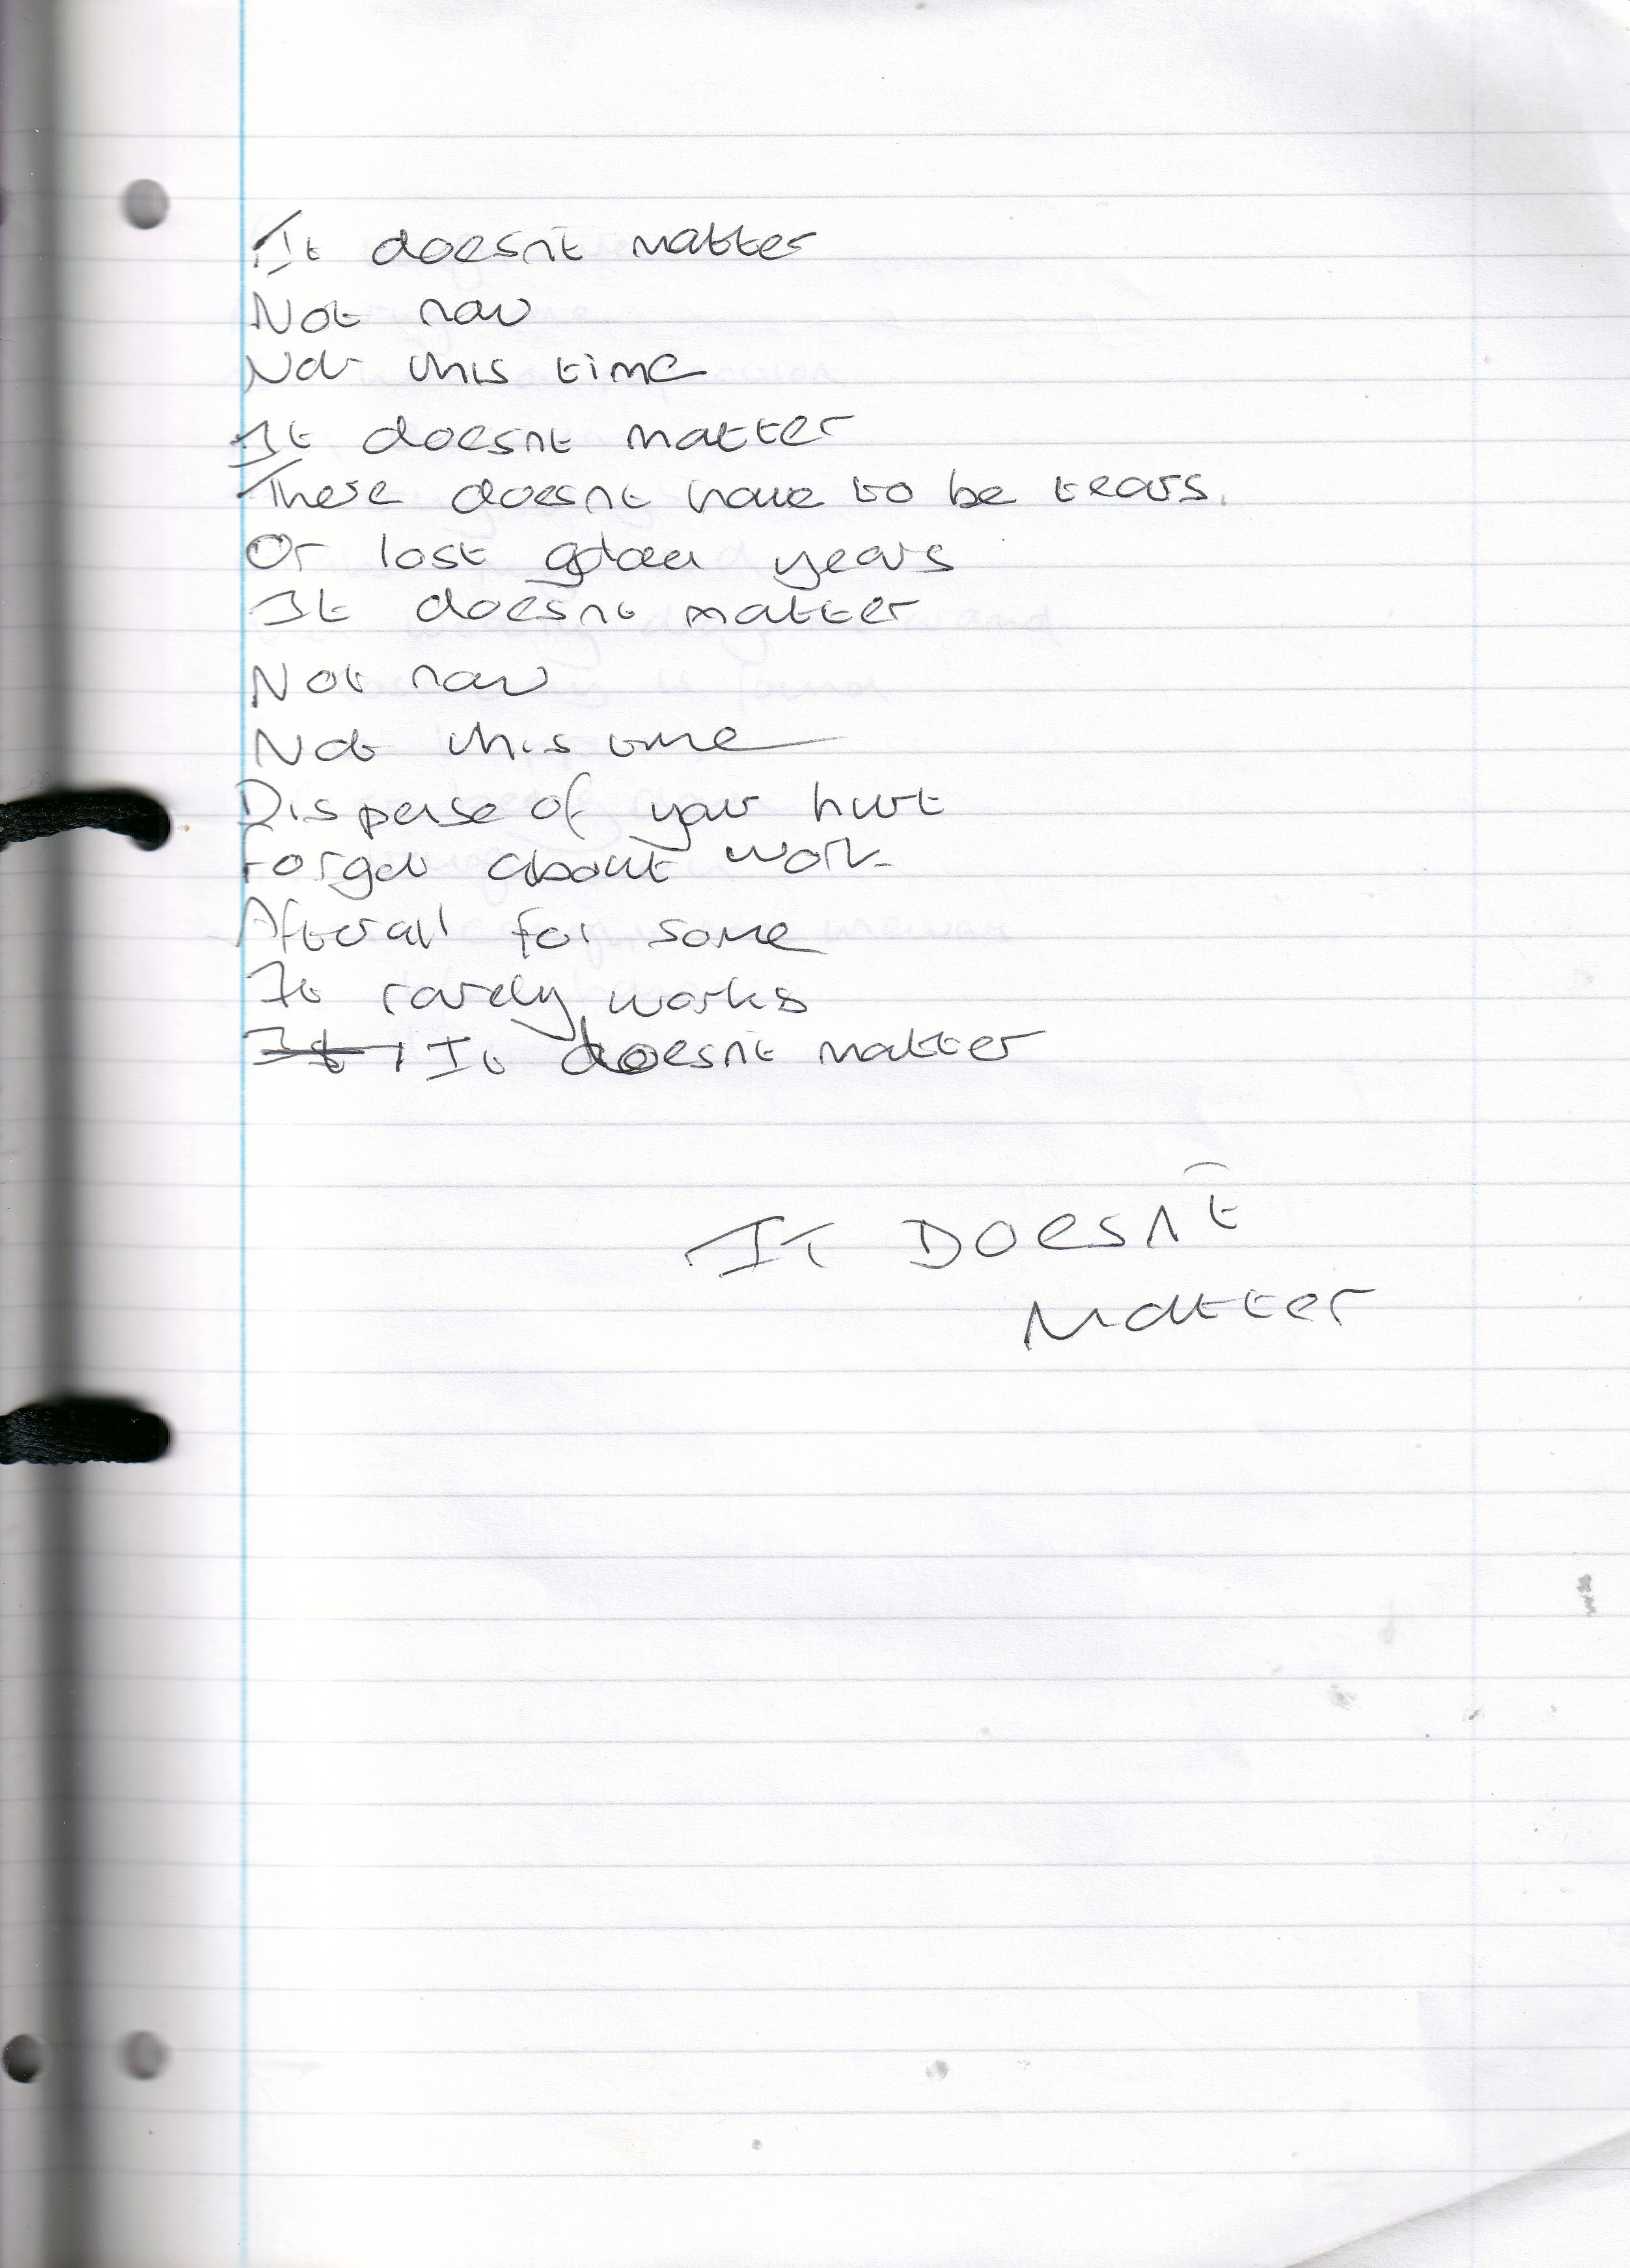 It doesn't matter
Not now
Not this time
It doesnt matter
There doesnt have to be tears.
Or lost golden years
It doesnt matter
Not now
Not this time
Disperse of your hurt
Forget about work
Afterall for some
It rarely works
It It doesn't matter
It Doesn't
Matter